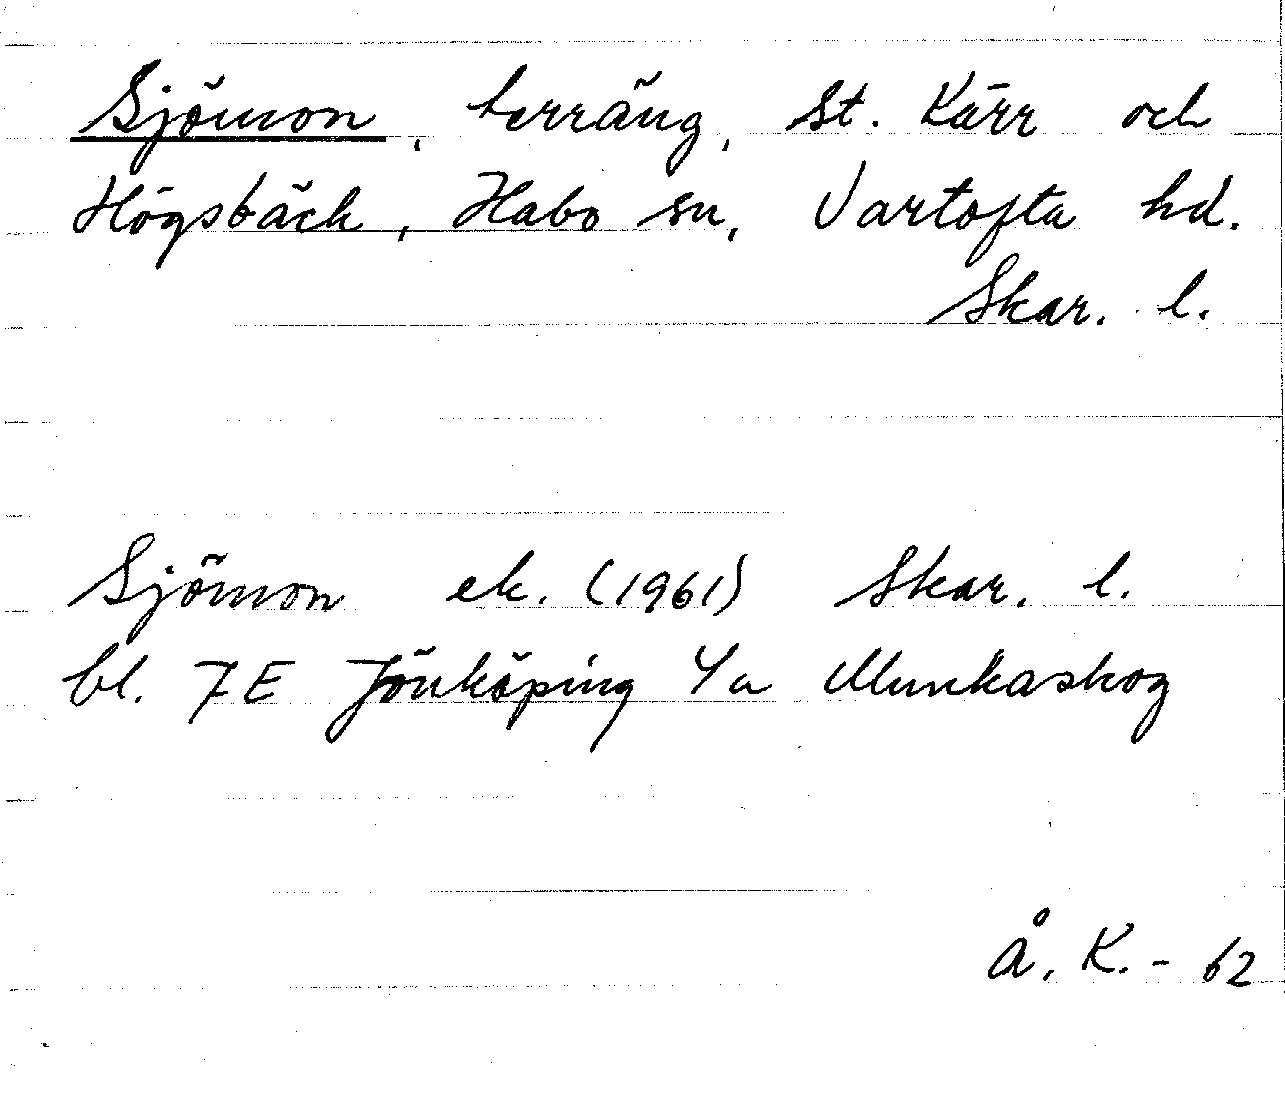 Sjömon, terräng, St. Kärr och
Högsbäck, Habo sn, Vartofta hd.
Skar. l.
Sjömon ek. (1961) Skar. l.
bl. 7E Jönköping 4a Munkaskog
Å. K. - 62